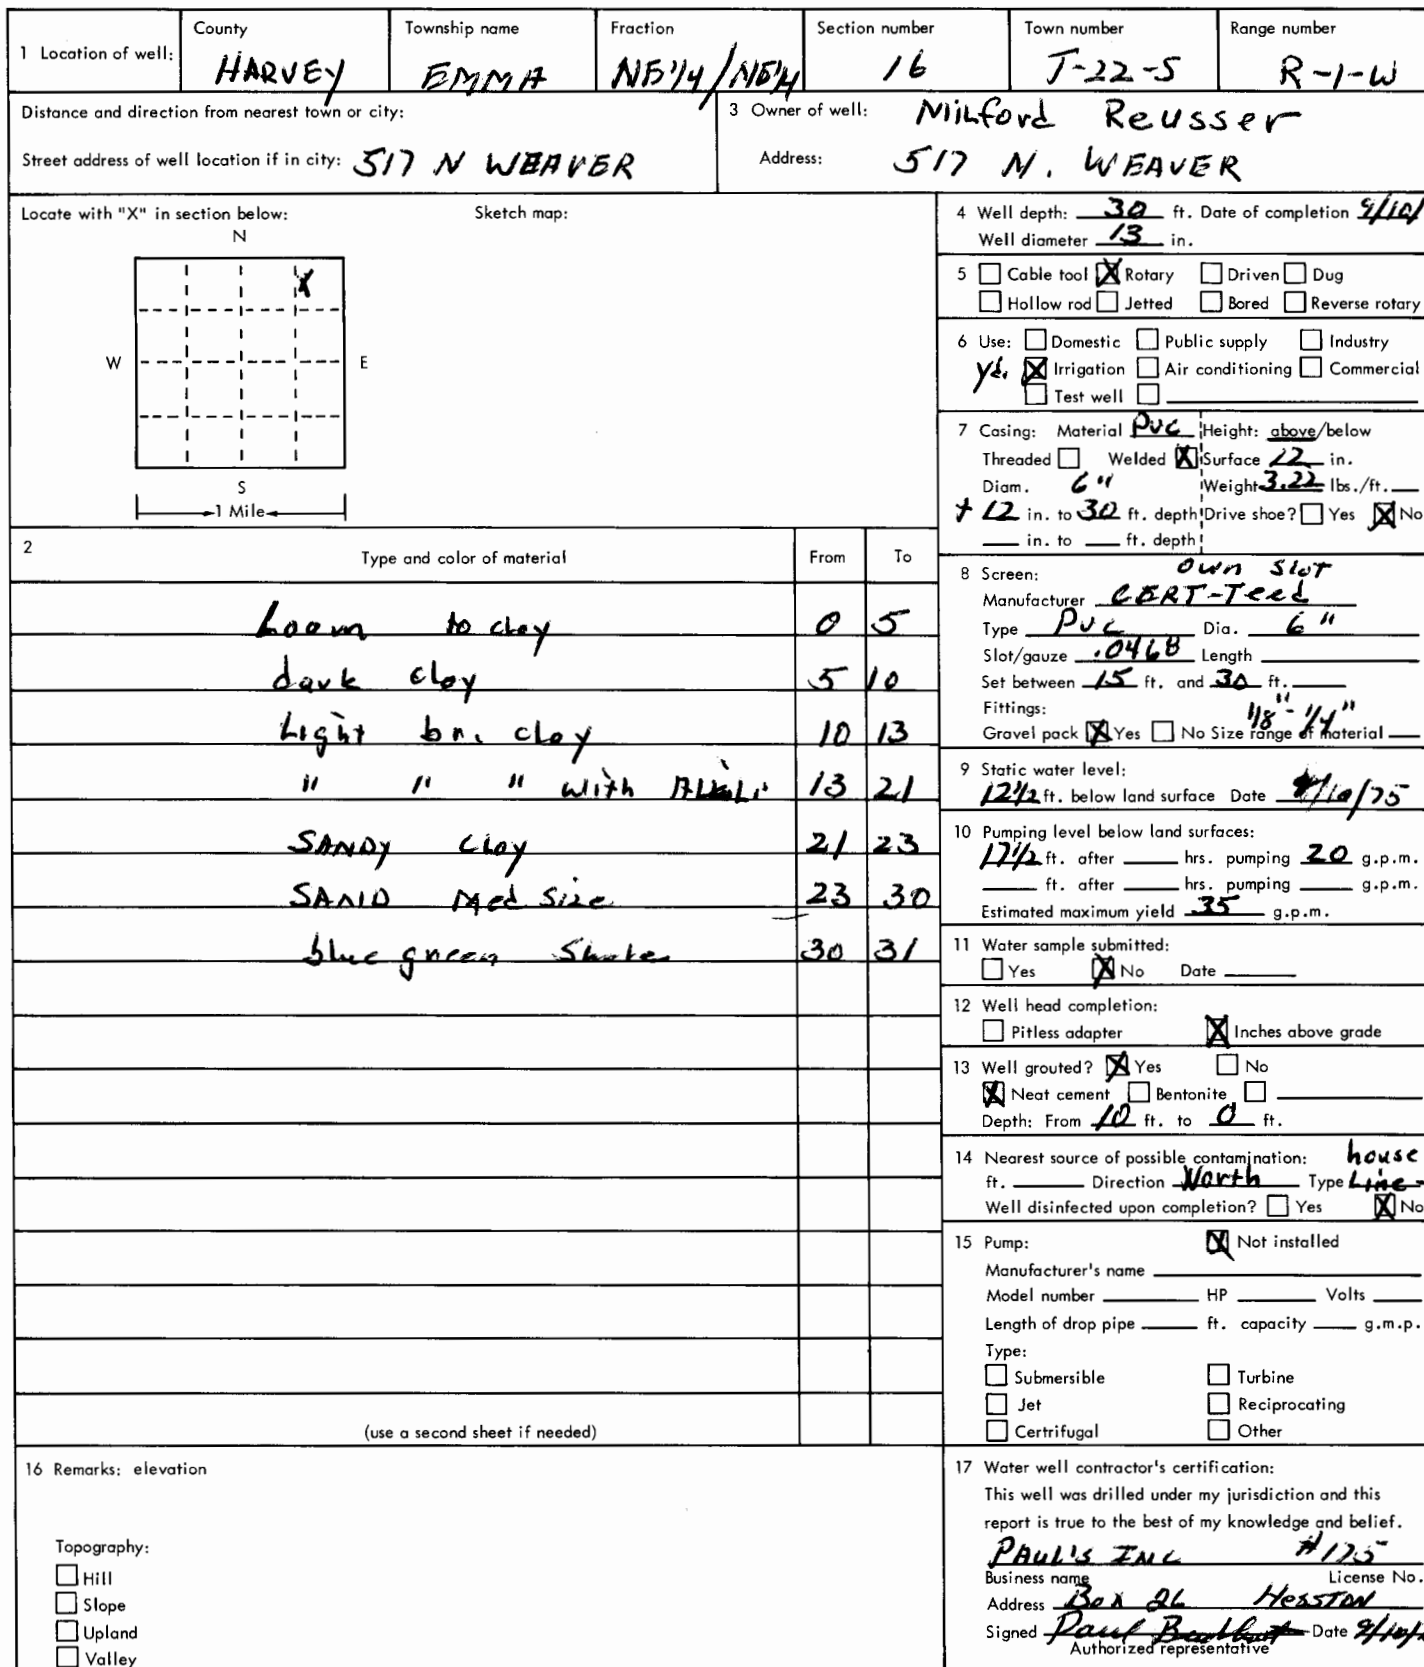 1 Location of well: County HARVEY Township name EMMA Fraction NE1/4/NE1/4 Section number 16 Town number T-22-S Range number R-1-W
Distance and direction from nearest town or city:
Street address of well location if in city: 517 N WEAVER
3 Owner of well: Milford Reusser
Address: 517 N. WEAVER
Locate with "X" in section below: Sketch map:
N
X
W E
S
1 Mile
2 Type and color of material From To
Loam to clay 0 5
dark clay 5 10
Light bn. clay 10 13
" " " with ALKALi 13 21
SANDY CLay 21 23
SAND Med Size 23 30
blue green Shale 30 31
(use a second sheet if needed)
4 Well depth: 30 ft. Date of completion 9/10/
Well diameter 13 in.
5 Cable tool X Rotary Driven Dug
Hollow rod Jetted Bored Reverse rotary
6 Use: Domestic Public supply Industry
yd. X Irrigation Air conditioning Commercial
Test well
7 Casing: Material PVC Height: above/below
Threaded Welded X Surface 12 in.
Diam. 6" Weight 3.22 lbs./ft.
+ 12 in. to 30 ft. depth Drive shoe? Yes X No
in. to ft. depth
8 Screen: own SLOT
Manufacturer CERT-Teed
Type PVC Dia. 6"
Slot/gauze .0468 Length
Set between 15 ft. and 30 ft.
Fittings: 1/8" - 1/4"
Gravel pack X Yes No Size range of material
9 Static water level:
12 1/2 ft. below land surface Date 9/10/75
10 Pumping level below land surfaces:
17 1/2 ft. after hrs. pumping 20 g.p.m.
ft. after hrs. pumping g.p.m.
Estimated maximum yield 35 g.p.m.
11 Water sample submitted:
Yes X No Date
12 Well head completion:
Pitless adapter X Inches above grade
13 Well grouted? X Yes No
X Neat cement Bentonite
Depth: From 10 ft. to 0 ft.
14 Nearest source of possible contamination: house
ft. Direction North Type Line-
Well disinfected upon completion? Yes X No
15 Pump: X Not installed
Manufacturer's name
Model number HP Volts
Length of drop pipe ft. capacity g.m.p.
Type:
Submersible Turbine
Jet Reciprocating
Certrifugal Other
16 Remarks: elevation
Topography:
Hill
Slope
Upland
Valley
17 Water well contractor's certification:
This well was drilled under my jurisdiction and this
report is true to the best of my knowledge and belief.
PAUL'S INC #175
Business name License No.
Address Box 26 HESSTON
Signed Paul Date 9/10/
Authorized representative